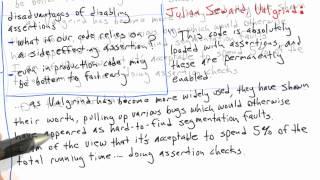 disadvantages of disabling
assertions
- what if our code relies on
a side-effecting assertion?
- even in production code, may
be better to fail early
Julian Seward, Valgrind:
"This code is absolutely
loaded with assertions, and
these are permanently
enabled
... as Valgrind has become more widely used, they have shown
their worth, pulling up various bugs which would otherwise
appeared as hard-to-find segmentation faults.
of the view that it's acceptable to spend 5% of the
total running time ... doing assertion checks.